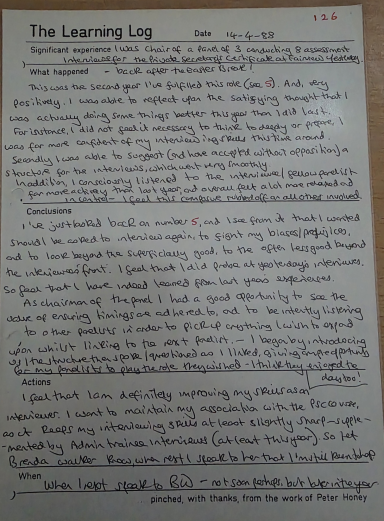 126
The Learning Log Date 14-4-88
Significant experience I was Chair of a Panel of 3 conducting 8 assessment
Interviews for the Private Secretary's Certificate at Fairview yesterday.
What happened - back after the Easter Break!
This was the second year I've fulfilled this role (see 5). And, very
positively, I was able to reflect upon the satisfying thought that I
was actually doing some things better this year than I did last.
For instance, I did not feel it necessary to think so deeply or prepare, I
was far more confident of my interviewing skills this time around.
Secondly I was able to suggest (and have accepted without opposition) a
structure for the interviews, which went very smoothly.
In addition, I consciously listened to the interviewee/fellow panelist
far more actively than last year, and overall felt a lot more relaxed and
in control - I feel this composure rubbed off on all others involved.
Conclusions
I've just looked back on number 5, and I see from it that I wanted
should I be asked to interview again, to fight my biases/prejudices,
and to look beyond the superficially good, to the often less good beyond
the interviewee's front. I feel that I did probe at yesterday's interviews,
so feel that I have indeed learned from last year's experiences.
As chairman of the panel I had a good opportunity to see the
value of ensuring timings are adhered to, and to be intently listening
to other panelists in order to pick up anything I wish to expand
upon whilst linking to the next panelist. - I began by introducing
us/the structure then spoke/questioned as I linked, giving ample opportunity
for my panelists to play the role they wished - I think they enjoyed the
day too!
Actions
I feel that I am definitely improving my skills as an
interviewer. I want to maintain my association with the PSC course,
as it keeps my interviewing skills at least slightly sharp - supple-
-mented by Admin trainee Interviews (at least this year). So let
Brenda Walker know, when next I speak to her that I'm still keen to help
When
When I next speak to BW - not soon perhaps, but later in the year
pinched, with thanks, from the work of Peter Honey